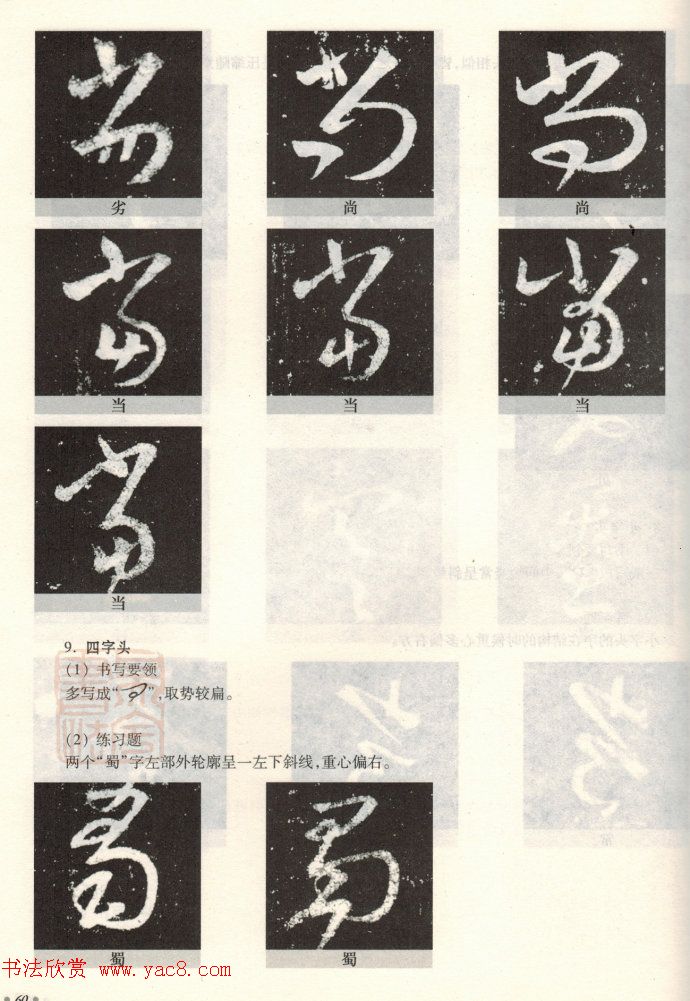 劣 尚 尚
当 当 当
当
9. 四字头
(1) 书写要领
多写成“ ”,取势较扁。
(2) 练习题
两个“蜀”字左部外轮廓呈一左下斜线,重心偏右。
蜀 蜀
书法欣赏 www.yac8.com
60